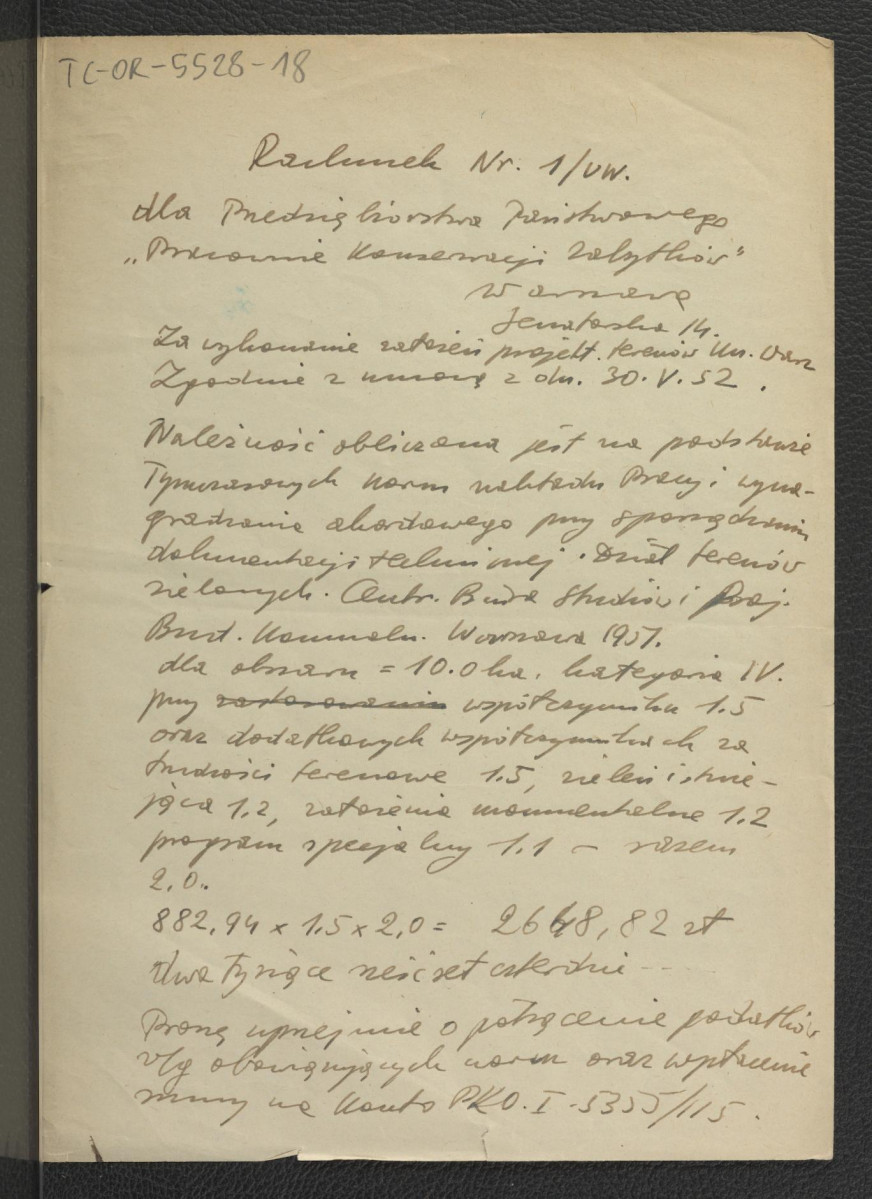 TC-OR-5528-18
Rachunek Nr. 1/UW.
dla Przedsiębiorstwa Państwowego
„Pracownie Konserwacji Zabytków"
Warszawa
Senatorska 14.
Za wykonanie założeń projekt. terenów Un. Warsz
Zgodnie z umową z dn. 30.V.52.
Należność obliczona jest na podstawie
Tymczasowych norm nakładu Pracy i wyna-
gradzania akordowego przy sporządzaniu
dokumentacji technicznej. Dział terenów
zielonych. Centr. Biura Studiów i Proj.
Bud. Komunaln. Warszawa 1951.
dla obszaru = 10.0 ha, kategoria IV.
przy zastosowaniu współczynnika 1.5
oraz dodatkowych współczynnikach za
trudności terenowe 1.5, zieleń istnie-
jąca 1.2, założenia monumentalne 1.2
program specjalny 1.1 – razem
2,0.
882,94 x 1.5 x 2,0 = 2648,82 zł
dwa tysiące sześćset czterdzie ---
Proszę uprzejmie o potrącenie podatków
w/g obowiązujących norm oraz wpłacenie
sumy na Konto PKO. I-5355/115.